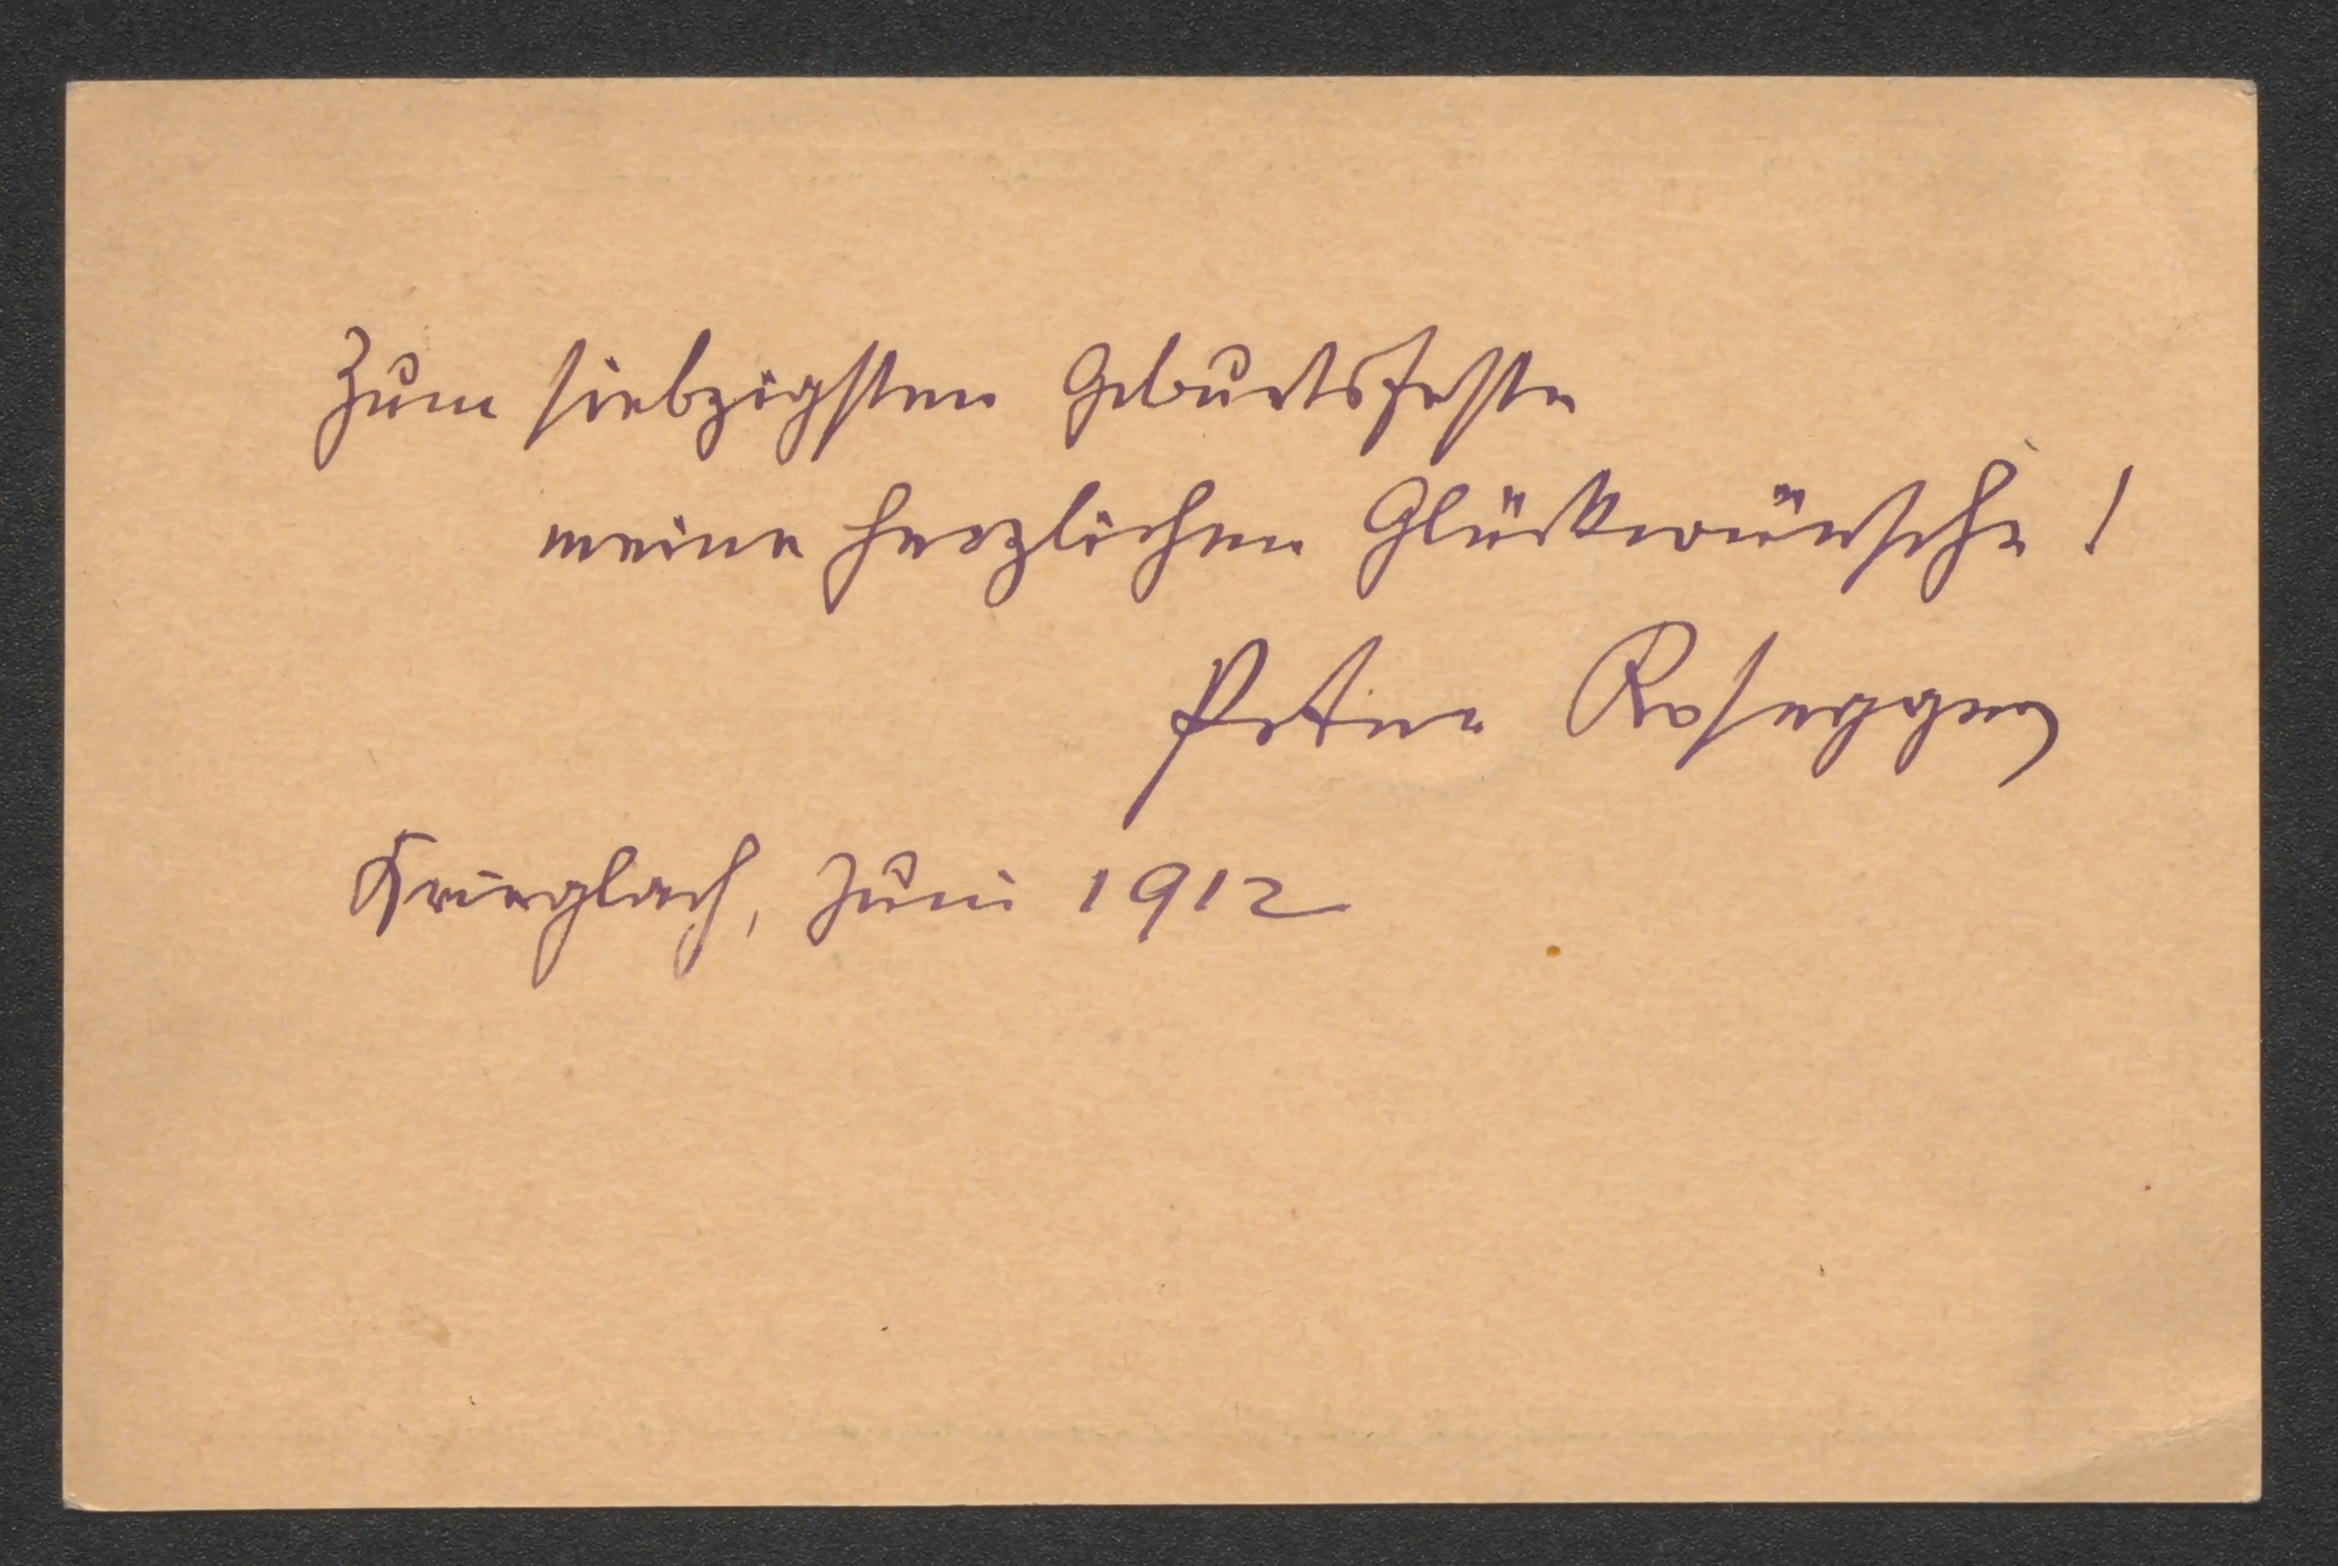 Zum siebzigsten Geburtsfeste
meine herzlichen Glückwünsche!
Peter Rosegger
Krieglach, Juni 1912